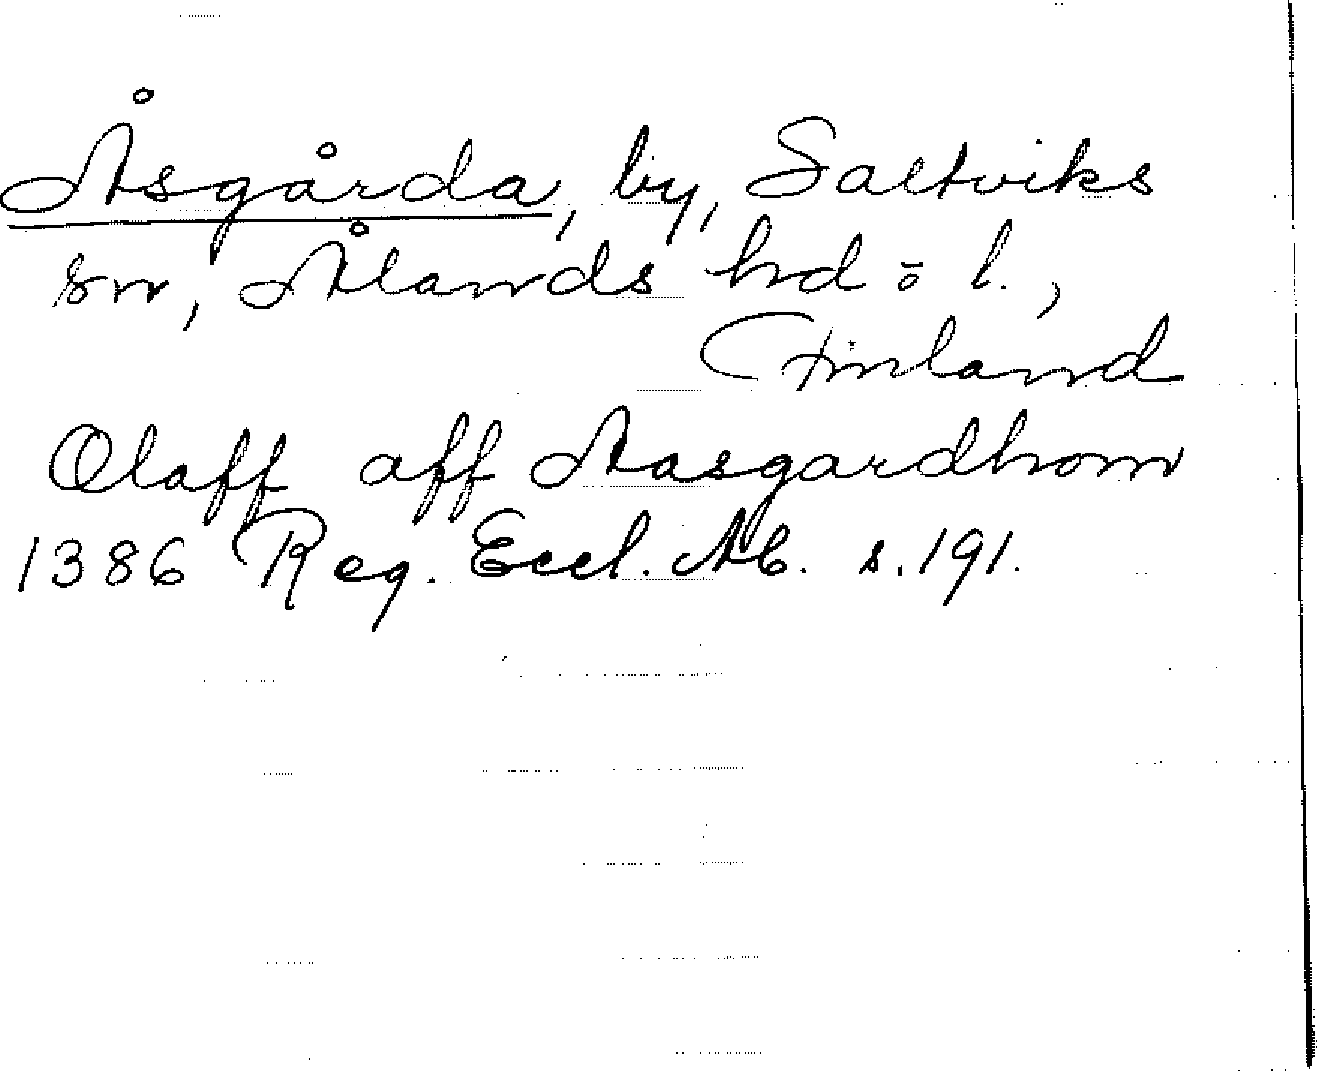 Åsgårda, by, Saltviks
sn, Ålands hd o l.,
Finland
Olaff aff Aasgardhom
1386 Reg. Eccl. Ab. s. 191.